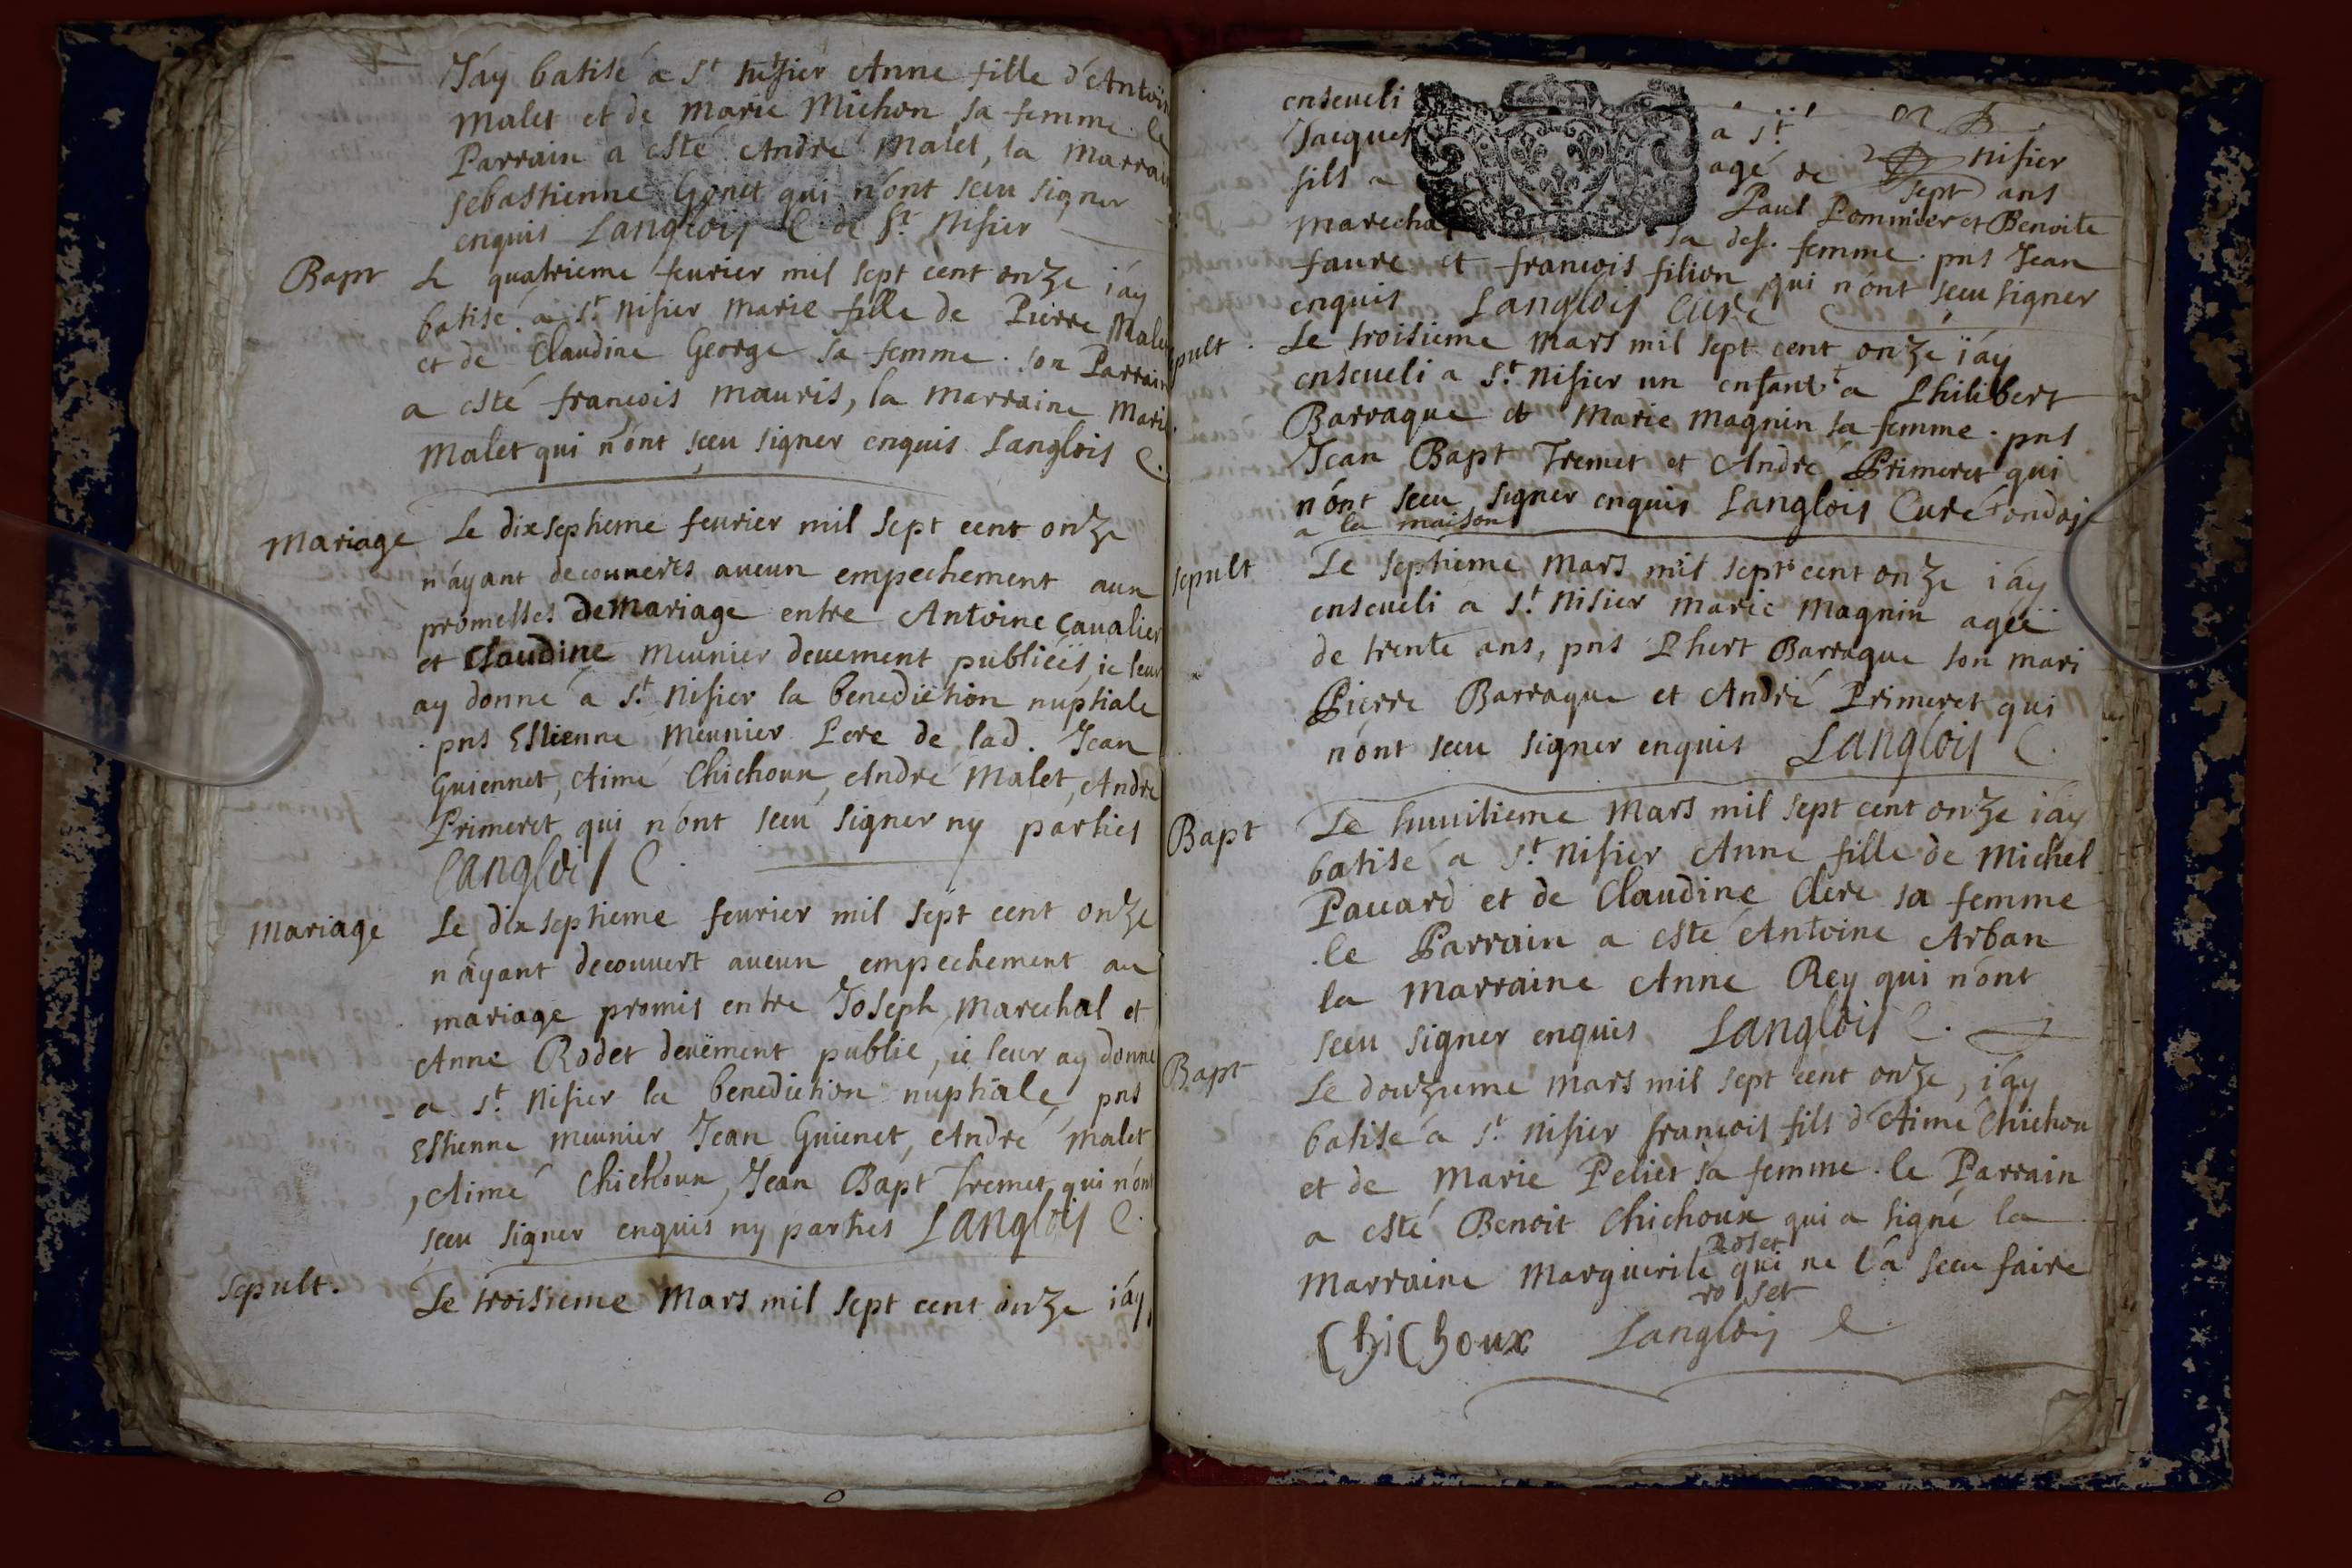 J'ay batisé a St Nisier Anne fille d'Antoin
Malet et de Marie Michon sa femme. le
Parrain a esté André Malet, la Marrain
sebastienne Gonet qui n'ont sceu signer
enquis Langlois C de St Nisier
Bapt Le quatrieme feurier mil sept cent onze i'ay
batisé a St Nisier Marie fille de Pierre Malet
et de Claudine George sa femme. son Parrain
a esté francois Mauris, la Marraine Marie
Malet qui n'ont sceu signer enquis Langlois C.
Mariage Le dixseptieme feurier mil sept cent onze
n'ayant decouuerts aucun empechement aux
promesses de Mariage entre Antoine Caualier
et Claudine Meunier deuement publiéës, ie leur
ay donné a St Nisier la benediction nuptiale
. pns Estienne Meunier Pere de lad. Jean
Guiennet, Aimé Chichoux, André Malet, André
Primeret qui n'ont sceu signer ny parties
Langlois C.
Mariage Le dixseptieme feurier mil sept cent onze
n'ayant decouuert aucun empechement au
mariage promis entre Joseph Marechal et
Anne Rodet deuëment publié, ie leur ay donné
a St Nisier la benediction nuptiale, pns
Estienne Meunier Jean Guienet, André Malet
, Aimé Chichoux, Jean Bapt Tremet qui n'ont
sceu signer enquis ny parties Langlois C.
Sepult. Le troisieme Mars mil sept cent onze i'ay
enseueli a St Nisier
Jacques agé de sept ans
fils a Paul Pommier et Benoite
Marechal sa def. femme. pns Jean
faure et francois filion qui n'ont sceu signer
enquis Langlois Curé
pult. Le troisieme Mars mil sept cent onze i'ay
enseueli a St Nisier un enfant + a Philibert
Barraque et Marie Magnin sa femme. pns
Jean Bapt Tremet et André Primeret qui
n'ont sceu signer enquis Langlois Curé + ondoje
a la maison
sepult Le septieme Mars mil sept cent onze i'ay
enseueli a St Nisier Marie Magnin ageë
de trente ans, pns Phert Barraque son mari
Pierre Barraque et André Primeret qui
n'ont sceu signer enquis Langlois C.
Bapt Le huuitieme Mars mil sept cent onze i'ay
batisé a St Nisier Anne fille de Michel
Pauard et de Claudine Clere sa femme
. le Parrain a esté Antoine Arban
la Marraine Anne Rey qui n'ont
sceu signer enquis Langlois C.
Bapt Le douzieme Mars mil sept cent onze, i'ay
batisé a St Nisier francois fils d'Aimé Chichoux
et de Marie Peliet sa femme. le Parrain
a esté Benoit Chichoux qui a signé la
Marraine Marguerite roset qui ne l'a sceu faire
ro set
ChiChoux Langlois C.